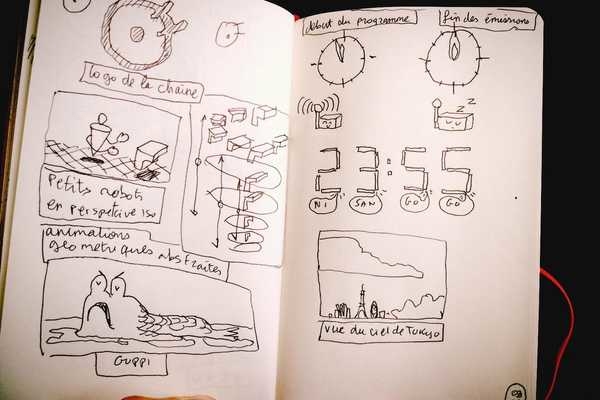 logo de la chaîne
Petits robots
en perspective iso
animations
géométriques abstraites
GUPPI
début du programme
fin des émissions
z z z
23:55
NI SAN GO GO
vue du ciel de Tokyo